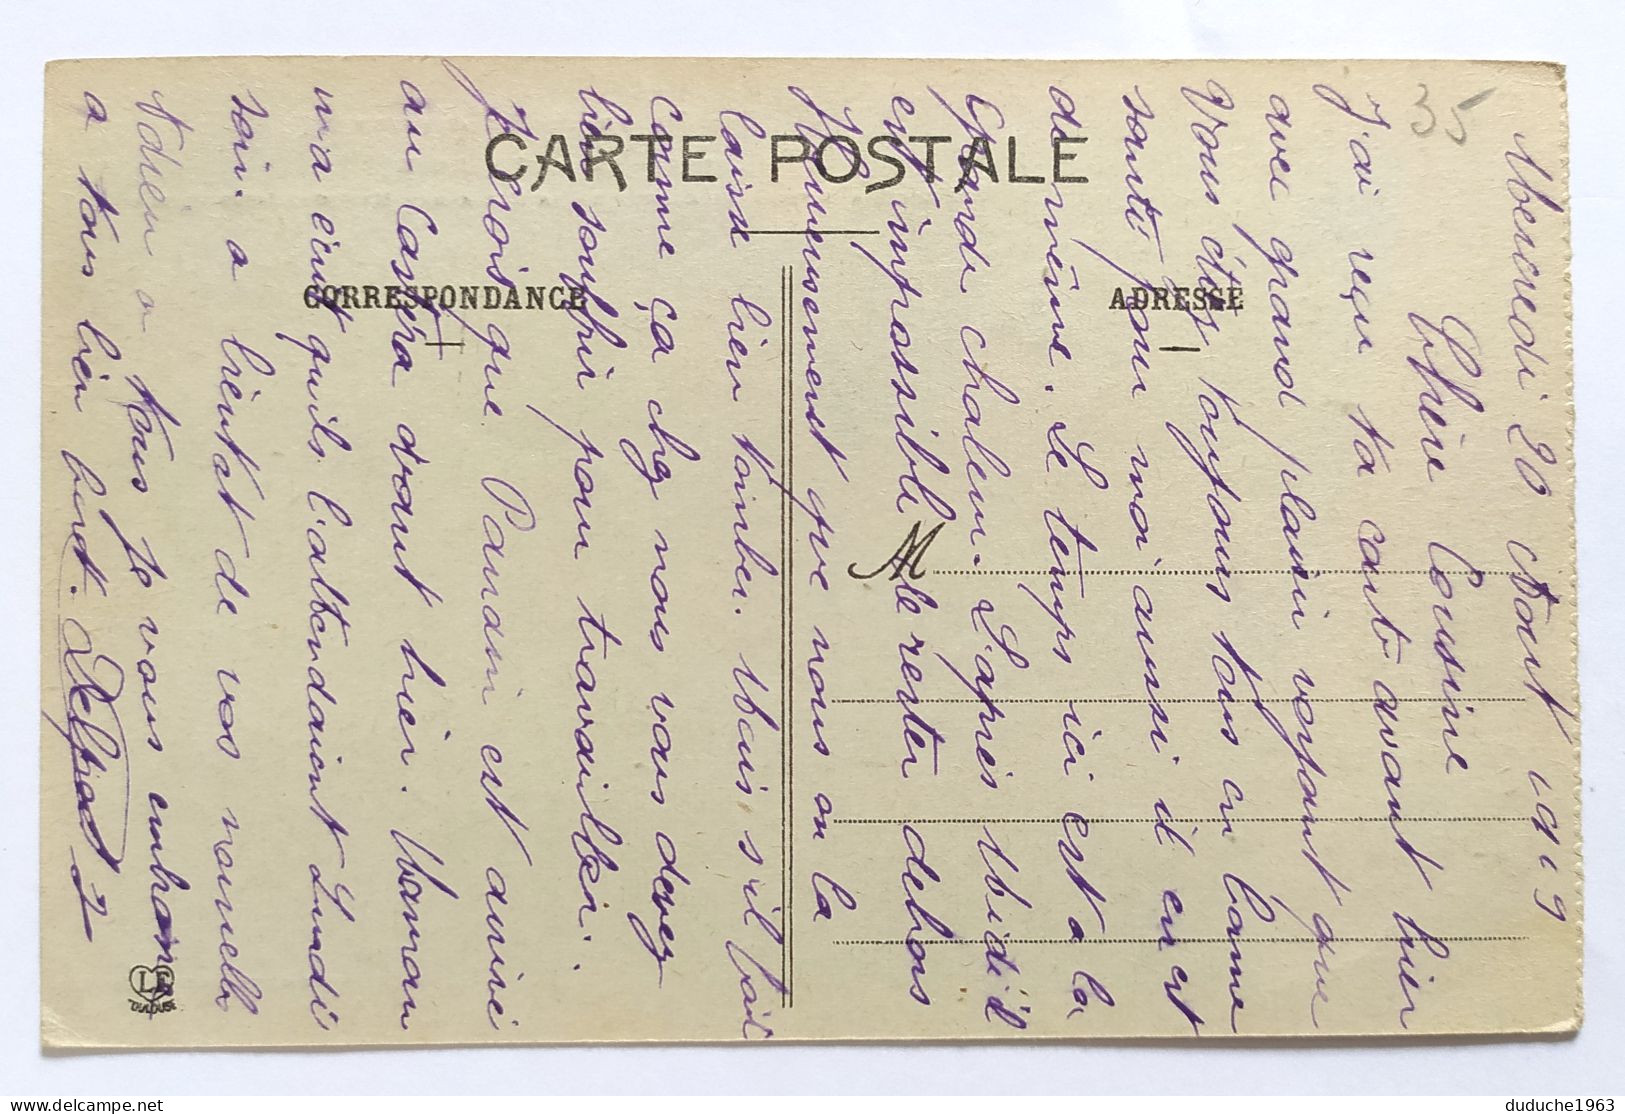 CARTE POSTALE
CORRESPONDANCE
ADRESSE
M
35
Mercredi 20 Aout 1919
Chère Cousine
J'ai reçu ta carte avant hier
avec grand plaisir voyant que
Vous étes toujours tous en bonne
santé pour moi aussi il en est
de même. Le temps ici est a la
Grande chaleur. L'apres Midi il
est impossible de rester dehors
Heureusement que nous on la
laisse bien tomber. Mais s'il fait
comme ça chez nous vous devez
bien souffrir pour travailler.
Je crois que est aussi
au dvant hier. Maman
m'a écrit quils l'attendaient Lundi
soir. a bientot de vos nouvelles
Adieu a tous je vous embrasse
a tous bien fort.
LF
TOULOUSE
delcampe.net
duduche1963